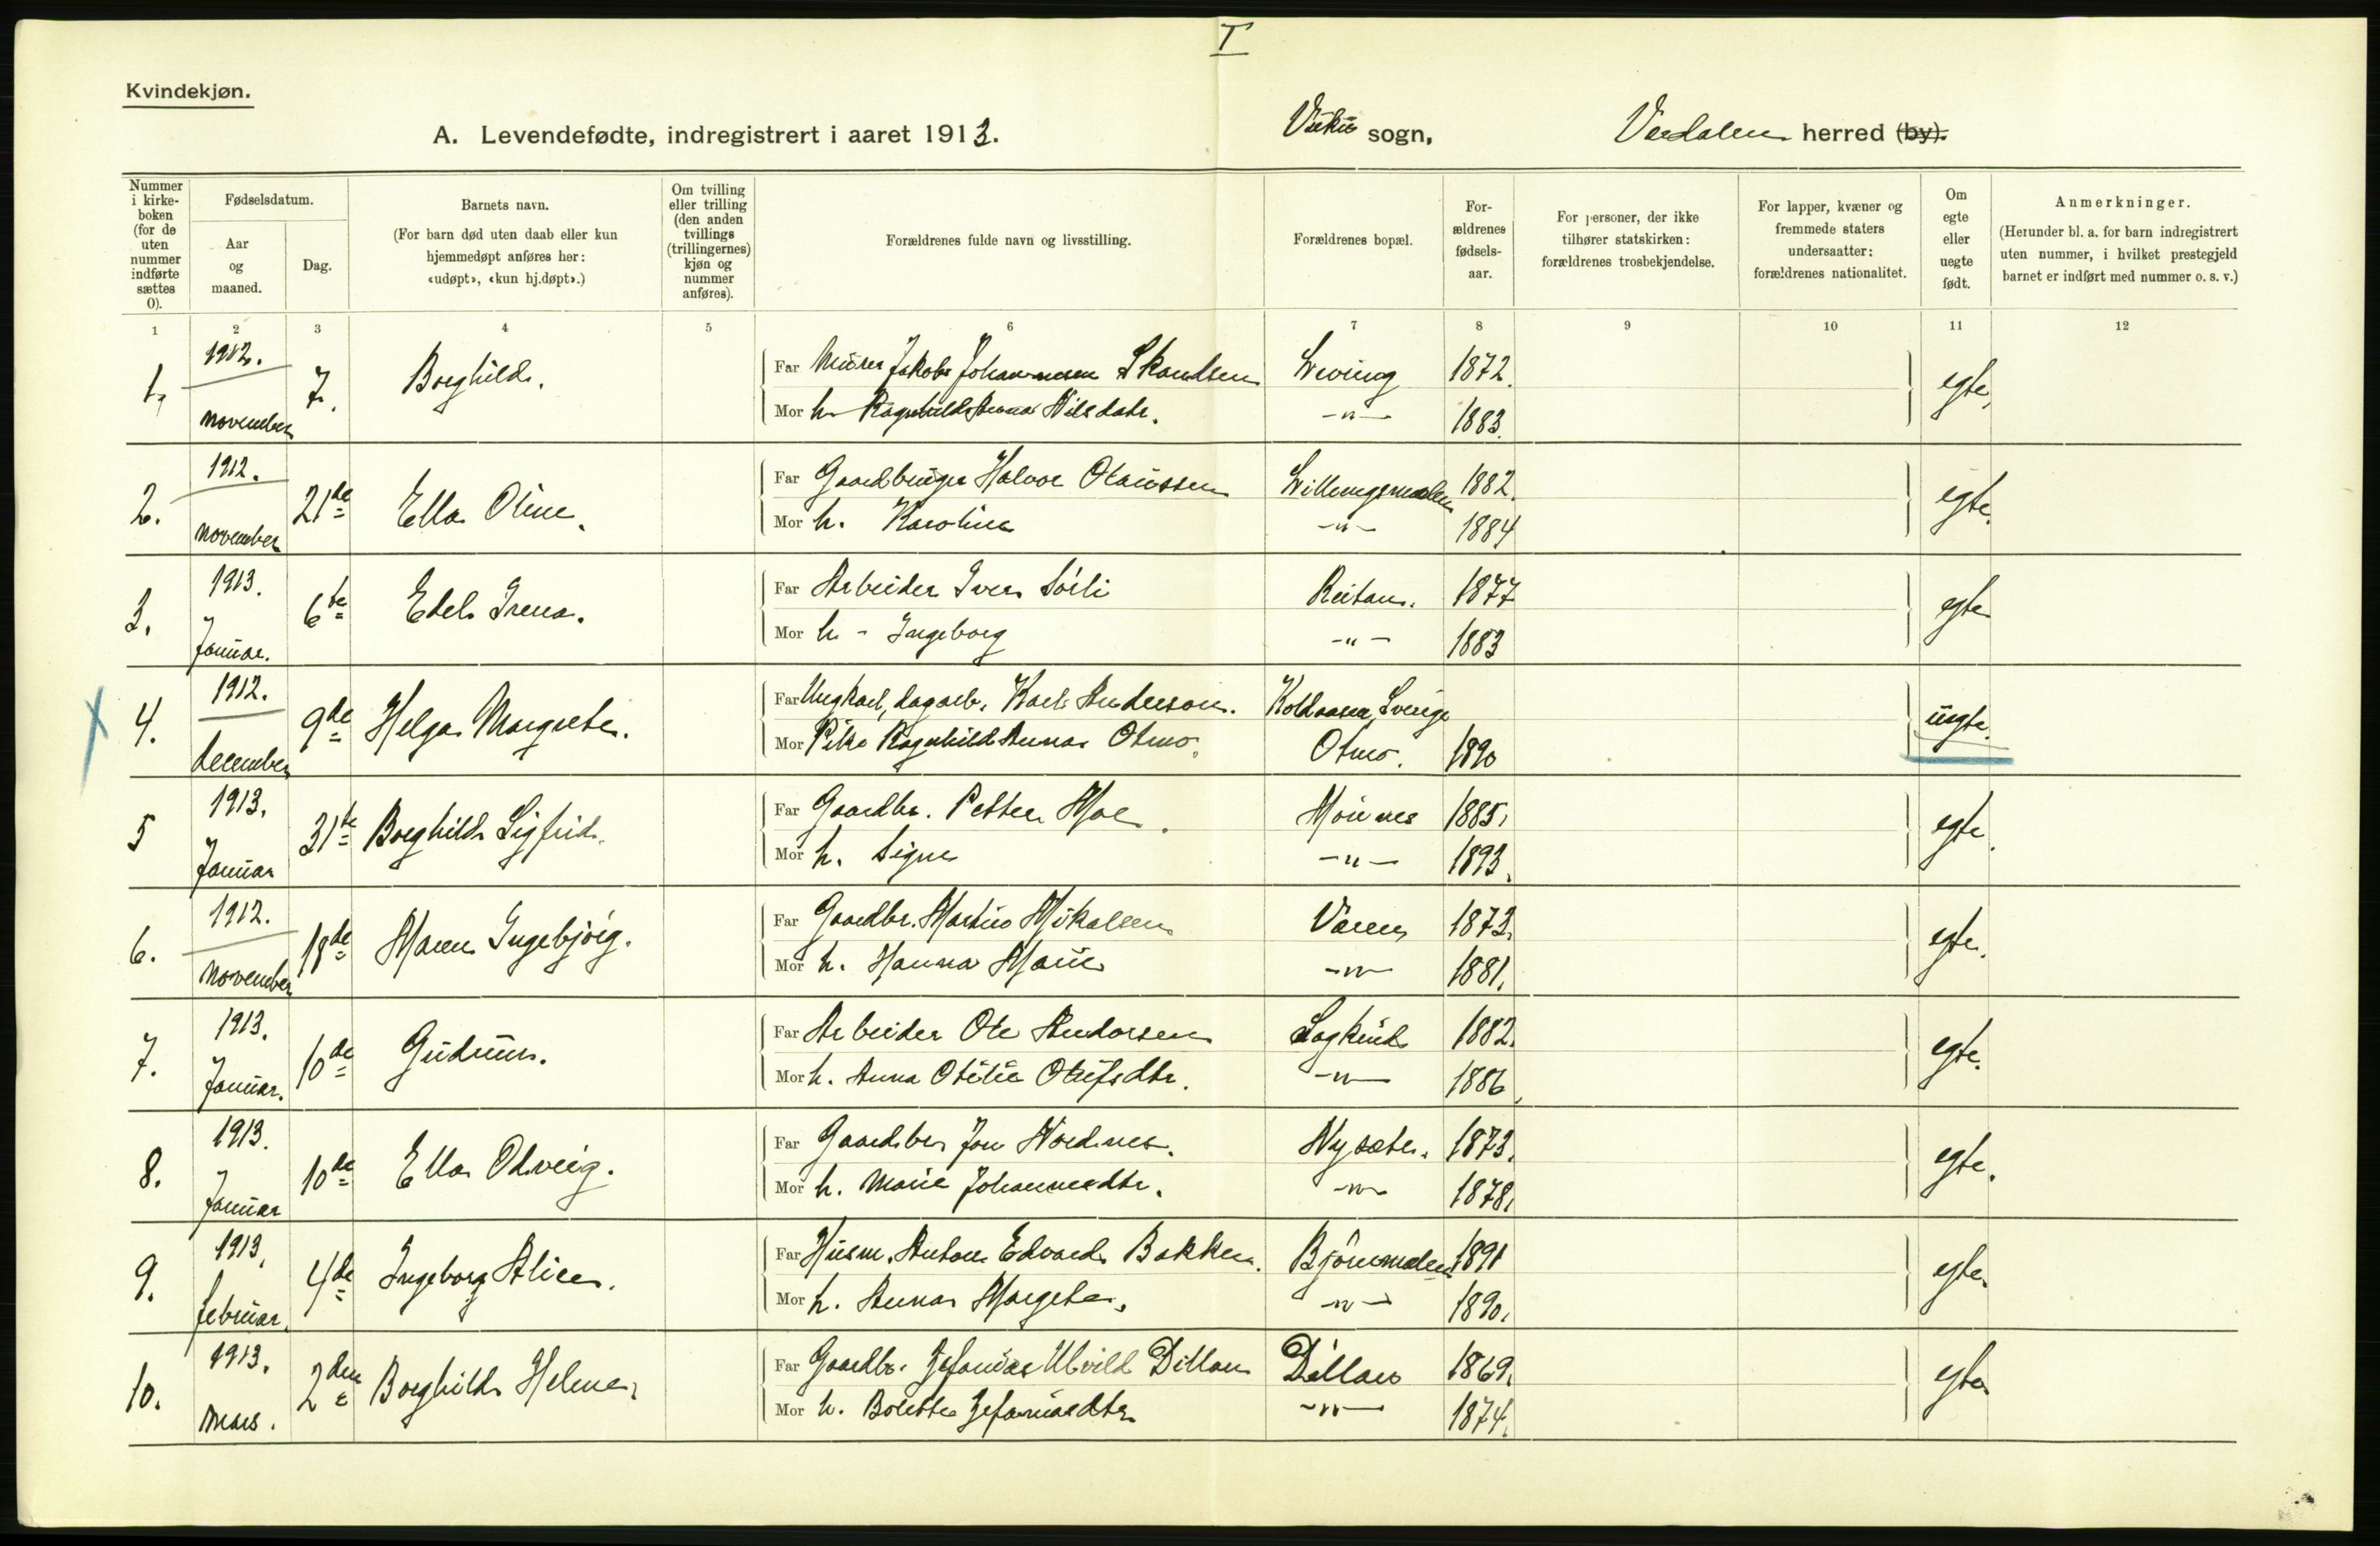 T
Kvindekjøn.
A. Levendefødte, indregistrert i aaret 1913. Vuku sogn, Verdalen herred (by).
Nummer i kirkeboken (for de uten nummer indførte sættes 0).
Fødselsdatum.
Aar og maaned.
Dag.
Barnets navn.
(For barn død uten daab eller kun hjemmedøpt anføres her: «udøpt», «kun hj.døpt».)
Om tvilling eller trilling (den anden tvillings (trillingernes) kjøn og nummer anføres).
Forældrenes fulde navn og livsstilling.
Forældrenes bopæl.
Forældrenes fødselsaar.
For personer, der ikke tilhører statskirken: forældrenes trosbekjendelse.
For lapper, kvæner og fremmede staters undersaatter: forældrenes nationalitet.
Om egte eller uegte født.
Anmerkninger.
(Herunder bl. a. for barn indregistrert uten nummer, i hvilket prestegjeld barnet er indført med nummer o. s. v.)
1 2 3 4 5 6 7 8 9 10 11 12
1. 1912. november 7. Borghild. egte,
Far Murer Jakob Johannesen Skandsen 1872.
Mor h. Ragnhild Anna Nilsdatr. -"- 1883.
2. 1912. november 21de Ella Oline. egte.
Far Gaardbruger Halvor Olaussen 1882.
Mor h. Karoline -"- 1884
3. 1913. Januar. 6te Edel Irena. egte
Far Arbeider Iver Sörli Reitan. 1877
Mor h - Ingeborg -"- 1883
4. 1912. december 9de Helga Margrete. uegte.
Far Ungkarl, dagarb. Karl Anderson. Koldaasen, Sverige
Mor Pike Ragnhild Anna Otmo. Otmo. 1890
5 1913. Januar 31te Borghild Sigfrid. egte.
Far Gaardbr. Petter Moe. 1885.
Mor h. Signe -"- 1893.
6. 1912. november 18de Maren Ingebjörg. egte.
Far Gaardbr. Martin Mikalsen 1873.
Mor h. Hanna Marie -"- 1881.
7. 1913. Januar. 10de Gudrun. egte.
Far Arbeider Ole Andorsen 1882.
Mor h. Anna Otilie Olufsdtr. -"- 1886.
8. 1913. Januar 10de Ella Odveig. egte.
Far Gaardbr Jon Nordnes. Nysæter. 1873.
Mor h. Marie Johannesdtr. -"- 1878.
9. 1913. februar. 4de Ingeborg Alice. egte.
Far Husm. Anton Edvard Bakken. Björnmelen 1891
Mor h. Anna Margete. -"- 1890.
10. 1913. Mars. 2den Borghild Helene. egte
Far Gaardbr. Zefanias Ulvild Dillan Dillan 1869.
Mor h. Bolette Zefaniasdtr -"- 1874.